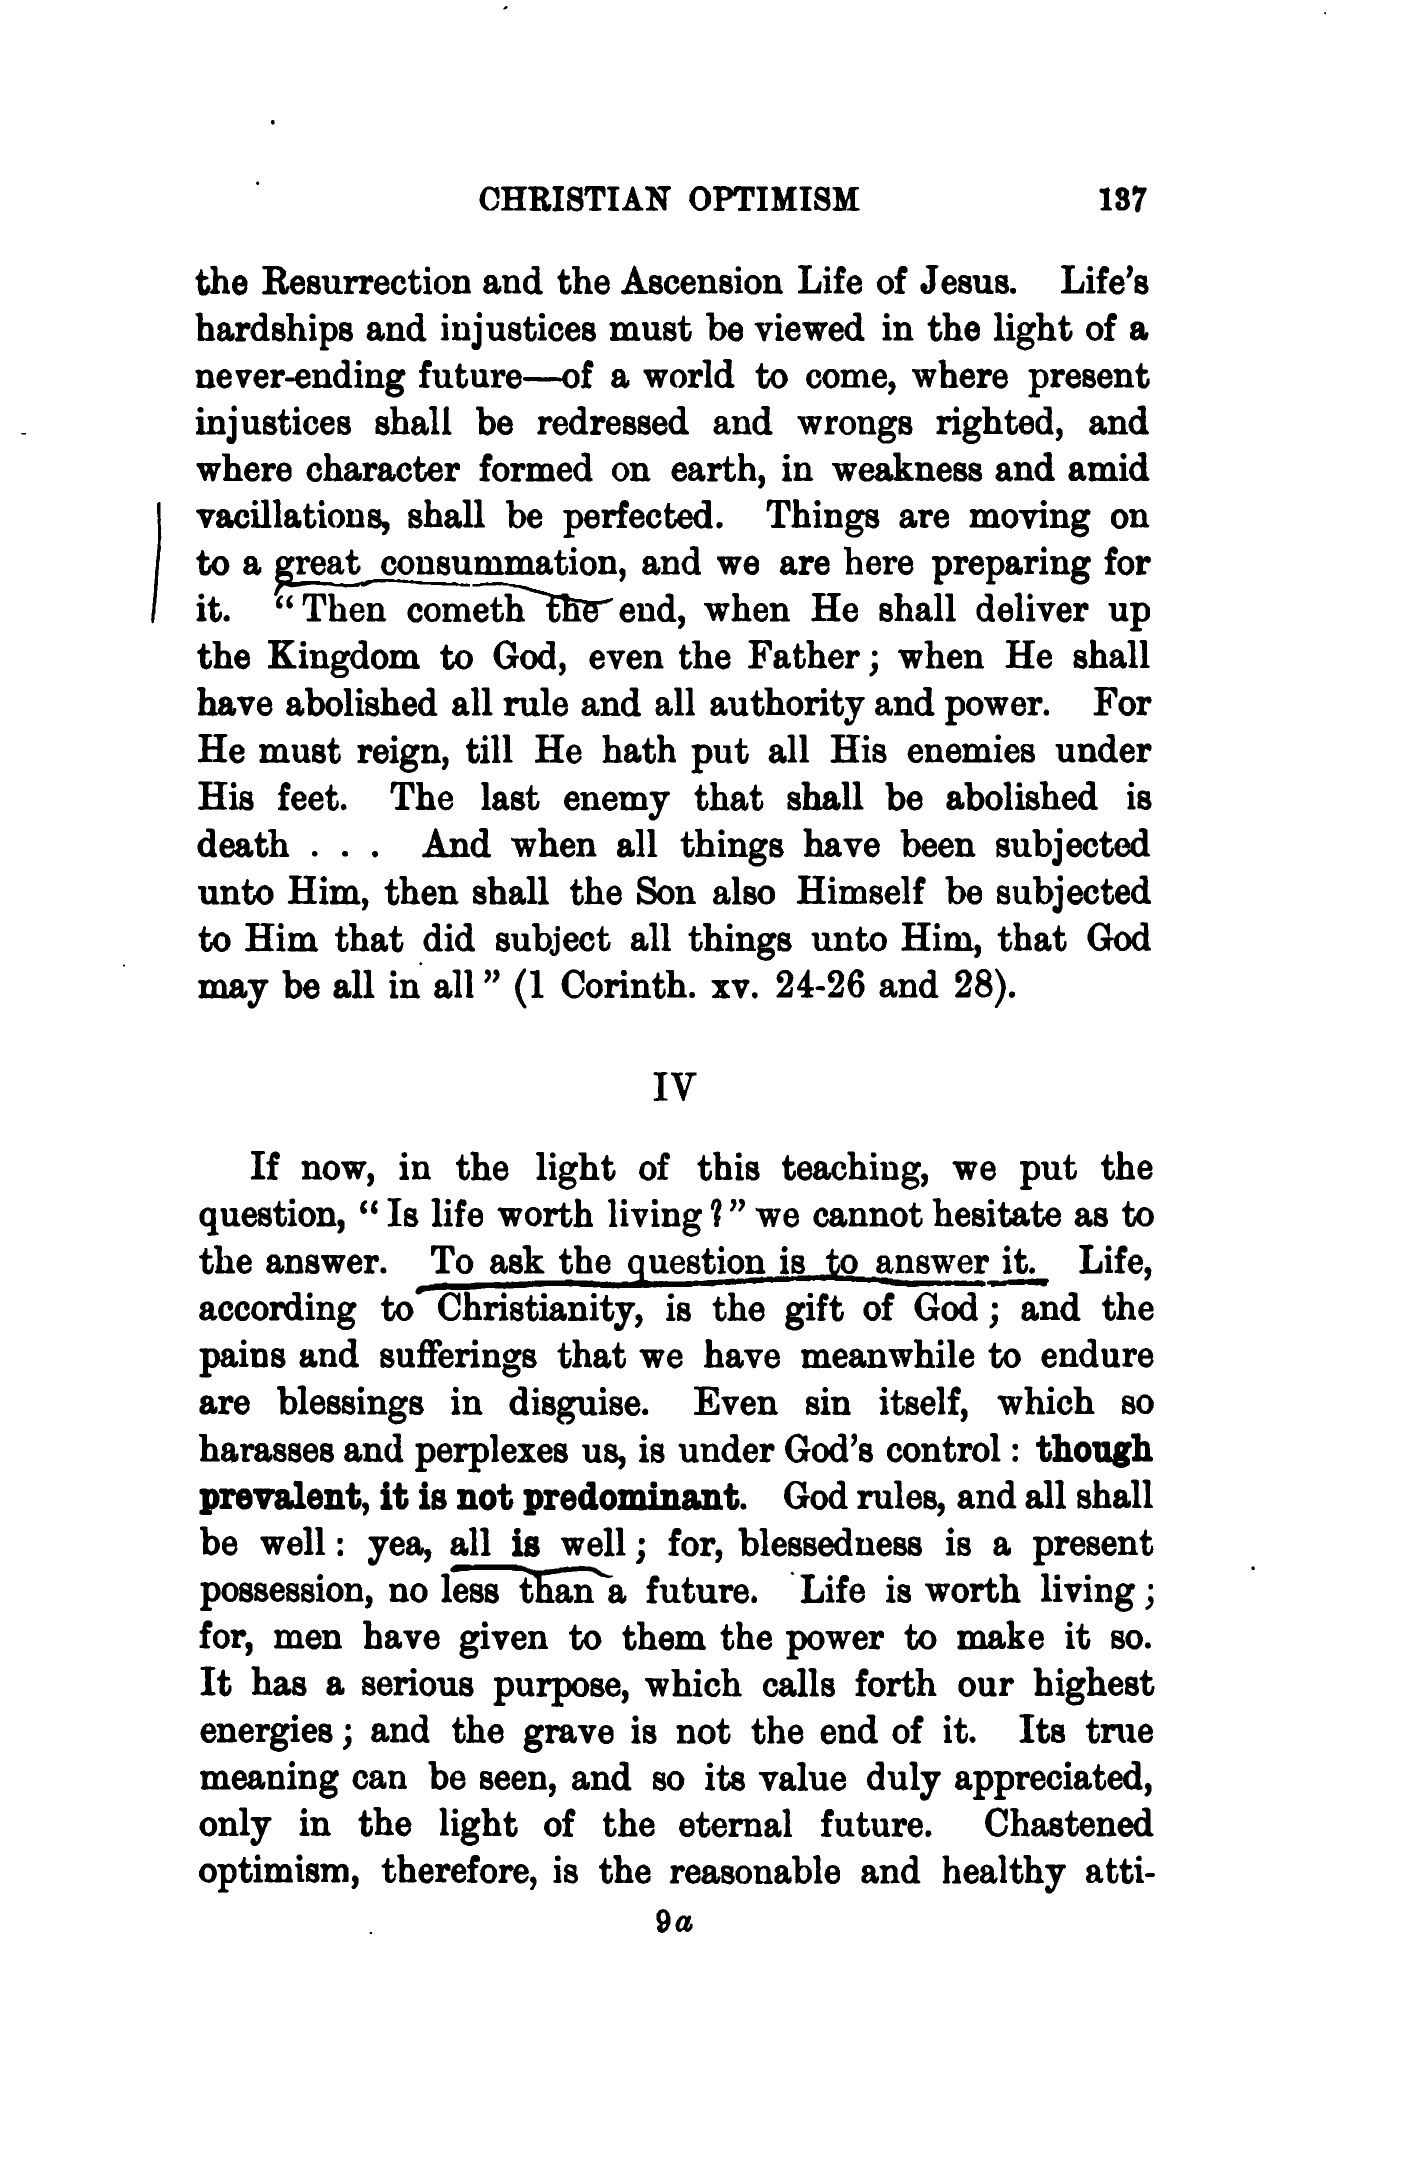 CHRISTIAN OPTIMISM 137
the Resurrection and the Ascension Life of Jesus. Life's
hardships and injustices must be viewed in the light of a
never-ending future—of a world to come, where present
injustices shall be redressed and wrongs righted, and
where character formed on earth, in weakness and amid
vacillations, shall be perfected. Things are moving on
to a great consummation, and we are here preparing for
it. "Then cometh the end, when He shall deliver up
the Kingdom to God, even the Father; when He shall
have abolished all rule and all authority and power. For
He must reign, till He hath put all His enemies under
His feet. The last enemy that shall be abolished is
death . . . And when all things have been subjected
unto Him, then shall the Son also Himself be subjected
to Him that did subject all things unto Him, that God
may be all in all" (1 Corinth. xv. 24-26 and 28).
IV
If now, in the light of this teaching, we put the
question, "Is life worth living?" we cannot hesitate as to
the answer. To ask the question is to answer it. Life,
according to Christianity, is the gift of God; and the
pains and sufferings that we have meanwhile to endure
are blessings in disguise. Even sin itself, which so
harasses and perplexes us, is under God's control: though
prevalent, it is not predominant. God rules, and all shall
be well: yea, all is well; for, blessedness is a present
possession, no less than a future. Life is worth living;
for, men have given to them the power to make it so.
It has a serious purpose, which calls forth our highest
energies; and the grave is not the end of it. Its true
meaning can be seen, and so its value duly appreciated,
only in the light of the eternal future. Chastened
optimism, therefore, is the reasonable and healthy atti-
9a